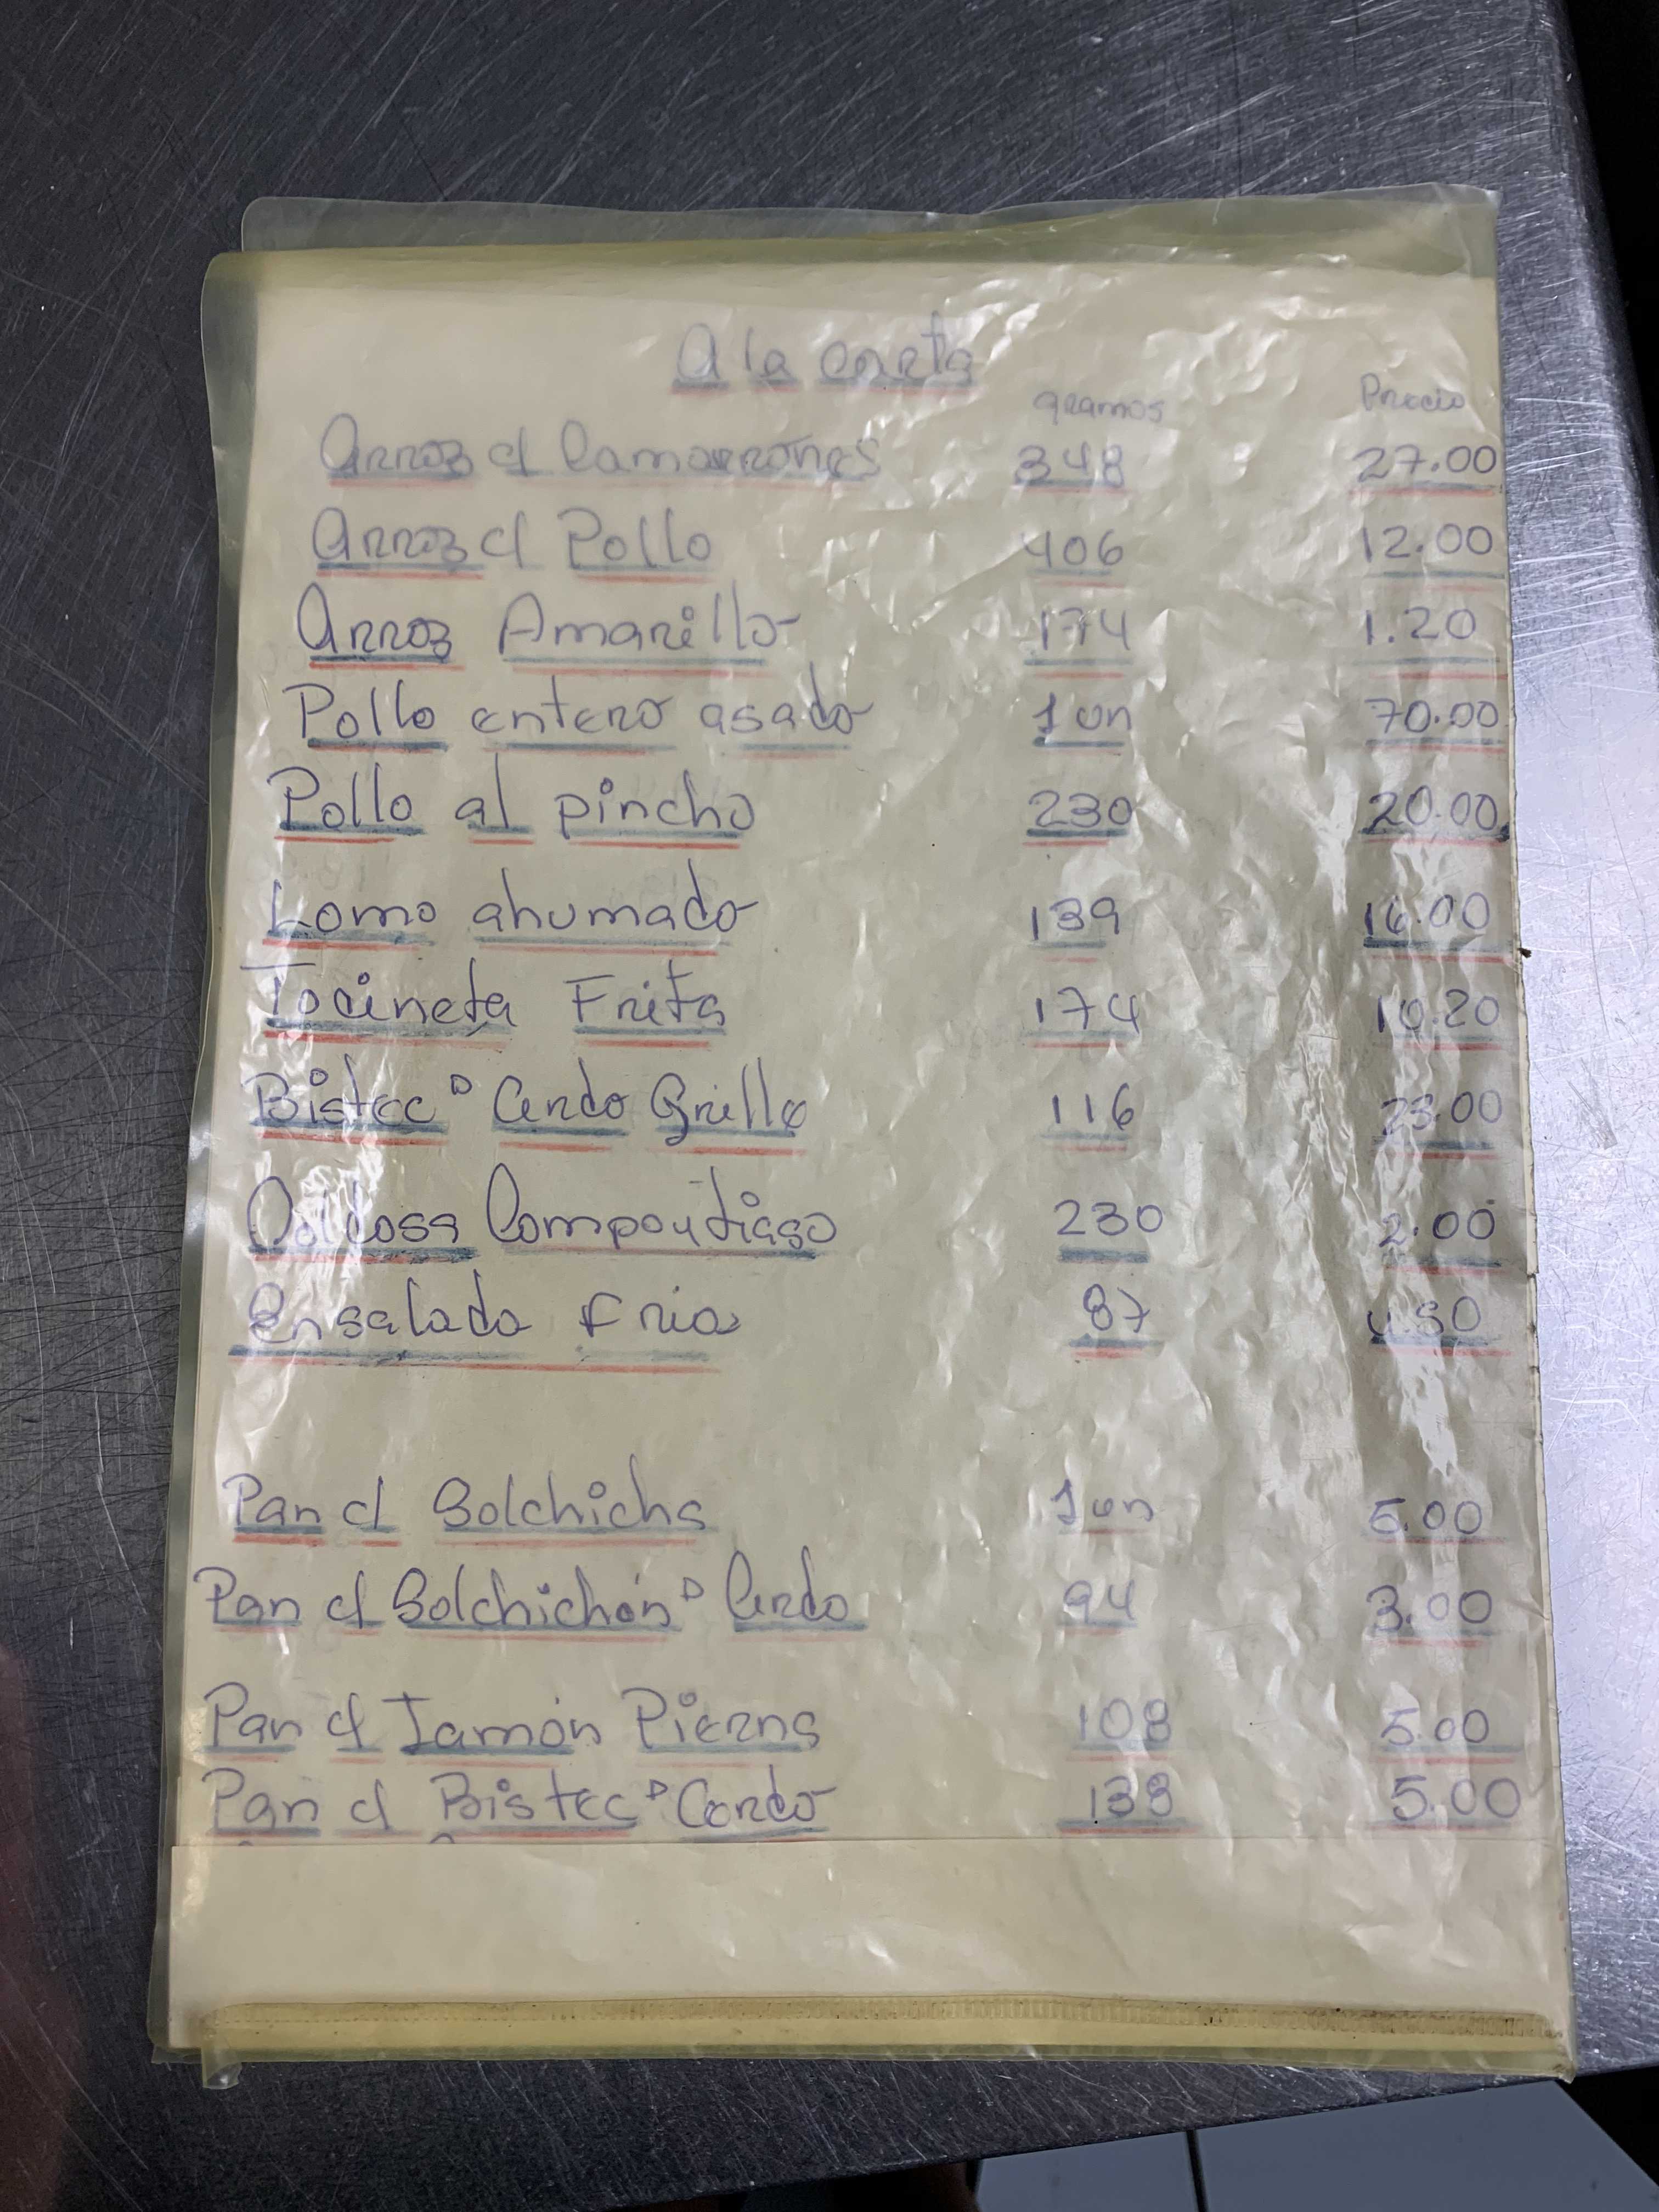 A la carta
gramos Precio
Arroz c/ Camarrones 348 27.00
Arroz c/ Pollo 406 12.00
Arroz Amarillo 174 1.20
Pollo entero asado 1 un 70.00
Pollo al pincho 230 20.00
Lomo ahumado 139 16.00
Tocineta Frita 174 10.20
Bistec D Cerdo Grille 116 23.00
Caldosa 230 2.00
Ensalada Fria 87
Pan c/ Solchicha 1 un 5.00
Pan c/ Solchichón D Cerdo 94 3.00
Pan c/ Jamón Pierna 108 5.00
Pan c/ Bistec D Cerdo 138 5.00